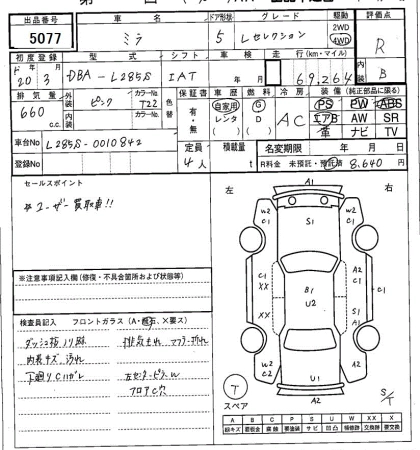 出品番号 車名 ドア形状 グレード 駆動 評価点
5077 ミラ 5 Lセレクション 2WD 4WD R
初度登録 型式 シフト 車検 走行(km・マイル) 内装
20年 3月 DBA-L285S IAT 年 月 69,264 B
排気量 外装 カラーNo. 色替 保証書 車歴 燃料 冷房 装備(純正部品に限る)
660 c.c. ピンク T22 有・無 自家用 G AC PS PW ABS
内装 カラーNo. レンタ D エアB AW SR
( ) ( ) 革 ナビ TV
車台No L285S-0010842 定員 積載量 名変期限 年 月 日
登録No 4人 t R料金 未預託・預託済 8,640円
セールスポイント
*ユーザー買取車!!
左 右
A1
W2 C1 S1 W2 C1
C1 XX B1 U2 A2 C1 C1
XX S1 A1
U1
A2 C1 A2
※注意事項記入欄(修復・不具合箇所および状態等)
検査員記入 フロントガラス(A・飛石、×要ス)
ダッシュ板ノリ跡 排気もれ マフラー折れ
内装キズ、汚れ
下廻りCハガレ 左センターピラーW
フロアC穴
T
スペア
S/T
A B C P S U W XX X
線キズ 鈑金 腐蝕 要塗装 サビ 凹凸 補修跡 交換跡 要交換